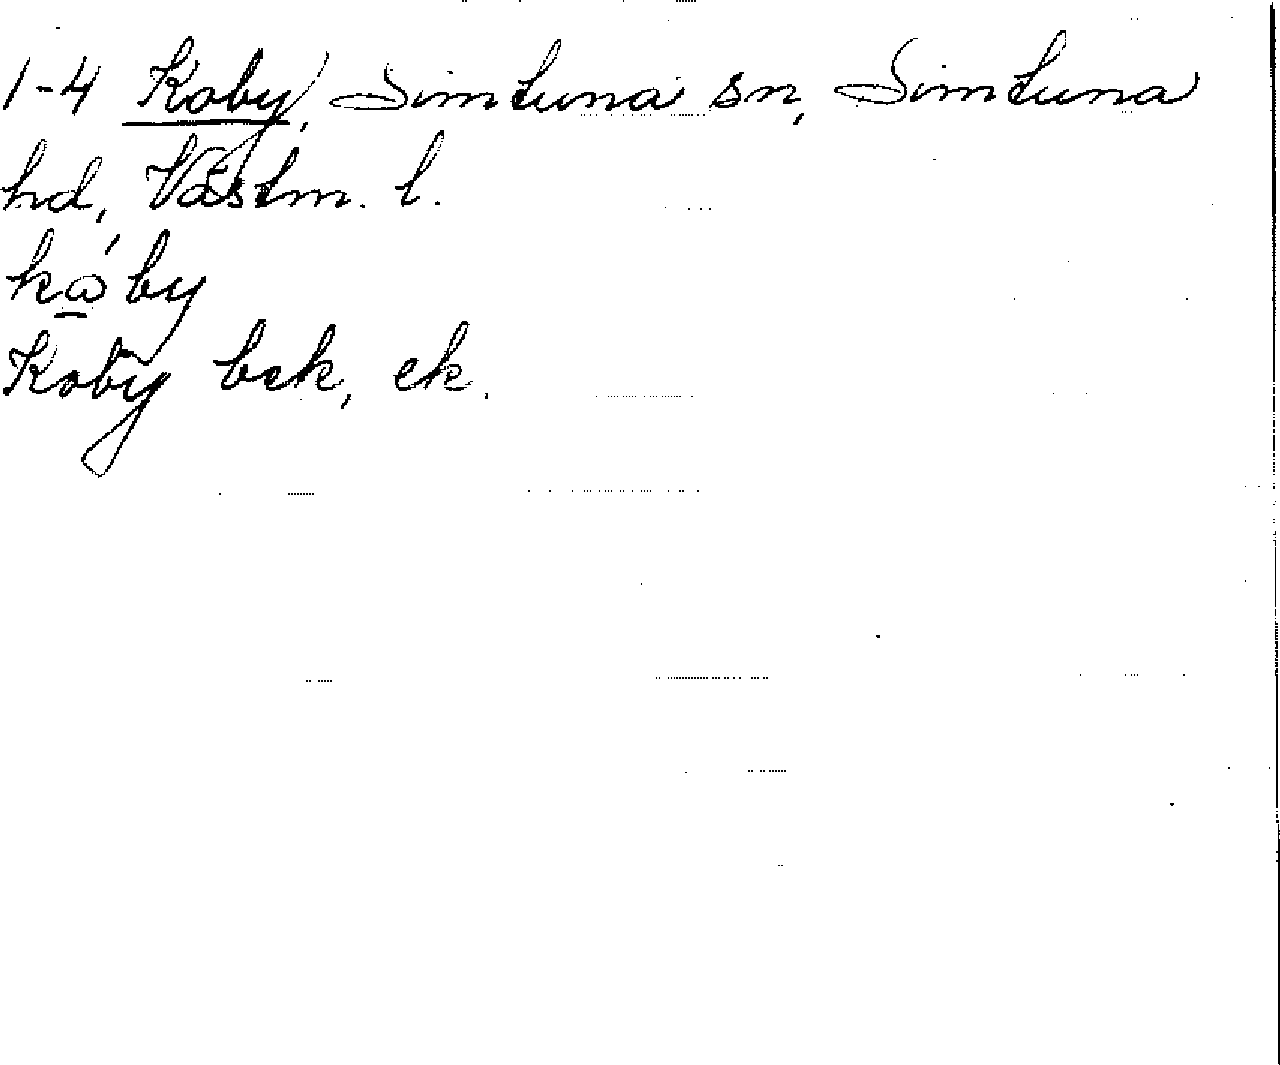 1-4 Koby, Simtuna sn, Simtuna
hd, Västm. l.
kǻby
Koby bek, ek.